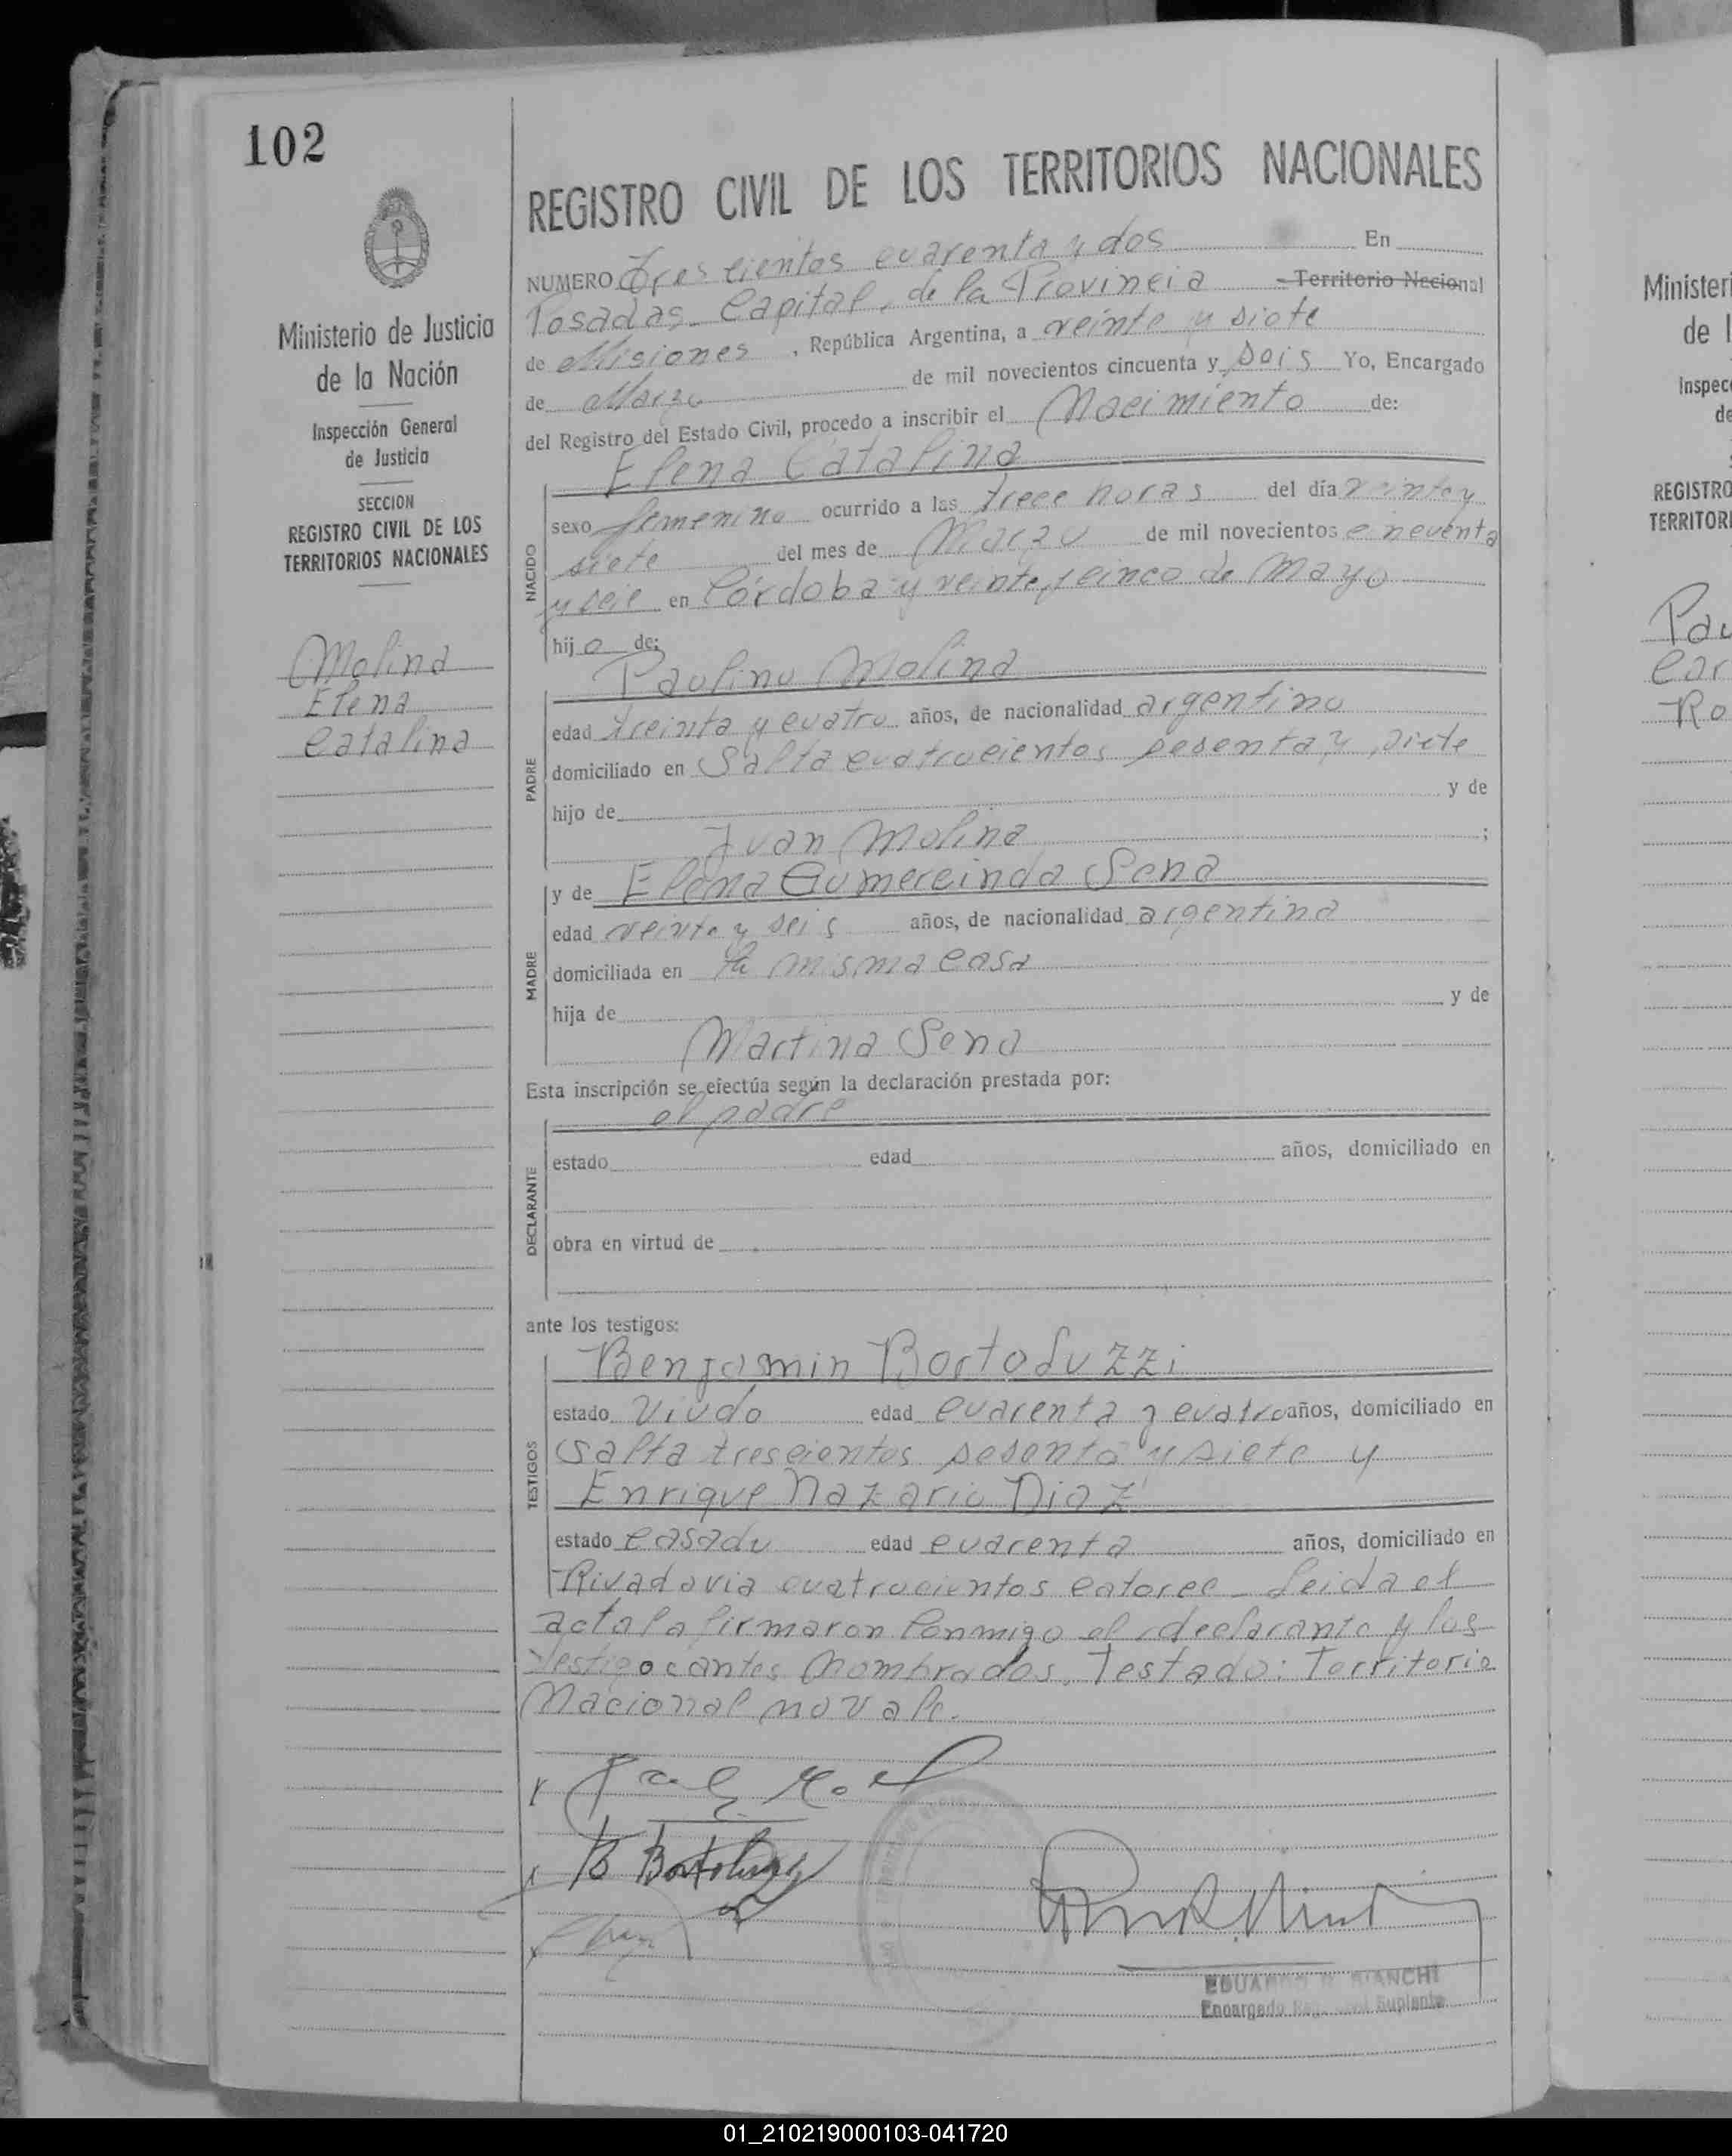 102
REGISTRO CIVIL DE LOS TERRITORIOS NACIONALES
NUMERO Trescientos cuarenta y dos En
Posadas Capital, de la Provincia Territorio Nacional
de Misiones, República Argentina, a veinte y siete
de Marzo de mil novecientos cincuenta y seis Yo, Encargado
del Registro del Estado Civil, procedo a inscribir el Nacimiento de:
Elena Catalina
NACIDO
sexo femenino ocurrido a las trece horas del día veinte y
siete del mes de Marzo de mil novecientos cincuenta
y seis en Córdoba y veinte y cinco de Mayo
hija de:
Paulino Molina
PADRE
edad treinta y cuatro años, de nacionalidad argentino
domiciliado en Salta cuatrocientos sesenta y siete
hijo de y de
Juan Molina ;
y de Elena Gumercinda Sena
MADRE
edad veinte y seis años, de nacionalidad argentina
domiciliada en la misma casa
hija de y de
Martina Sena
Esta inscripción se efectúa según la declaración prestada por:
el padre
DECLARANTE
estado edad años, domiciliado en
obra en virtud de
ante los testigos:
Benjamin Bortoluzzi
TESTIGOS
estado Viudo edad cuarenta y cuatro años, domiciliado en
Salta trescientos sesenta y siete y
Enrique Nazario Diaz
estado casado edad cuarenta años, domiciliado en
Rivadavia cuatrocientos catorce - Leida el
acta la firmaron conmigo el declarante y los
testigo cantes nombrados. Testado: Territorio
Nacional no vale.
B Bortoluzzi
EDUARDO R. BIANCHI
Encargado Reg. Civil Suplente
Ministerio de Justicia
de la Nación
Inspección General
de Justicia
SECCION
REGISTRO CIVIL DE LOS
TERRITORIOS NACIONALES
Molina
Elena
Catalina
Ministeri
de l
Inspec
de
REGISTRO
TERRITORI
Pau
Car
Ro
01_210219000103-041720